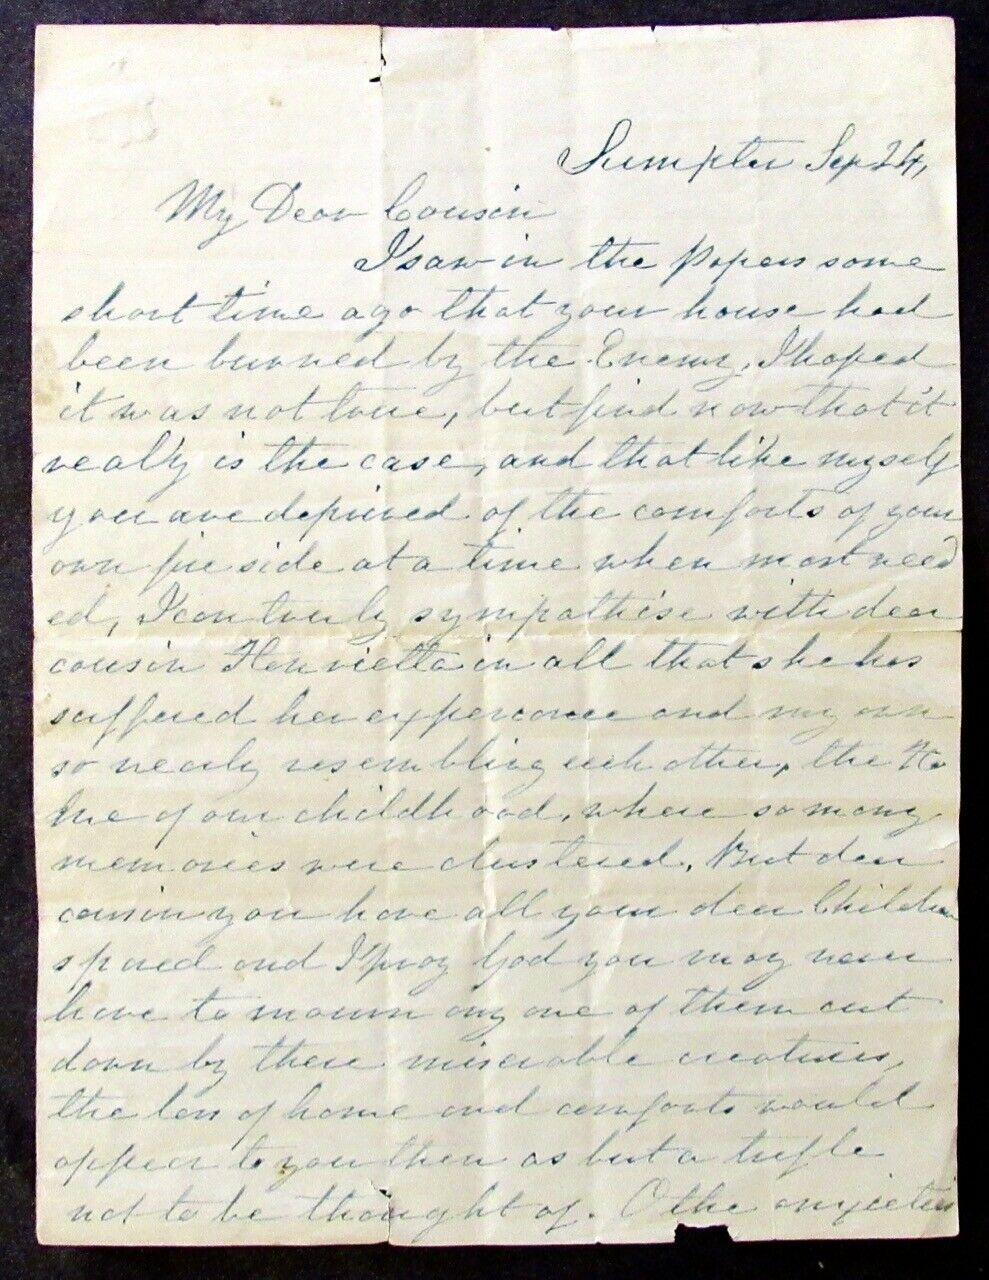 Sumpter Sep 24,
My Dear Cousin
I saw in the Papers some
short time ago that your house had
been burned by the Enemy, I hoped
it was not true, but find now that it
really is the case, and that like myself
you are deprived of the comforts of your
own fire side at a time when most need
ed, I can truly sympathise with dear
cousin Henrietta in all that she has
suffered her experience and my own
so nearly resembling each other, the Ho
me of our childhood, where so many
memories were clustered, But dear
cousin you have all your dear Children
spared and I pray God you may never
have to mourn any one of them cut
down by these miserable creatures,
the loss of home and comforts would
appear to you then as but a trifle
not to be thought of. O the anxieties